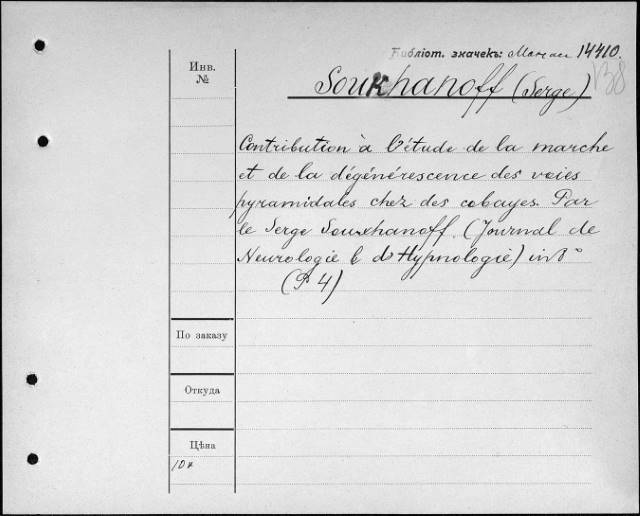 Библіот. значекъ: 14410.
B8
Инв.
№
Soukhanoff (Serge)
Contribution à l'étude de la marche
et de la dégénérescence des voies
pyramidales chez des cobayes. Par
le Serge Soukhanoff. (Journal de
Neurologie & d'Hypnologie) in 8°
(P 4)
По заказу
Откуда
Цѣна
10к